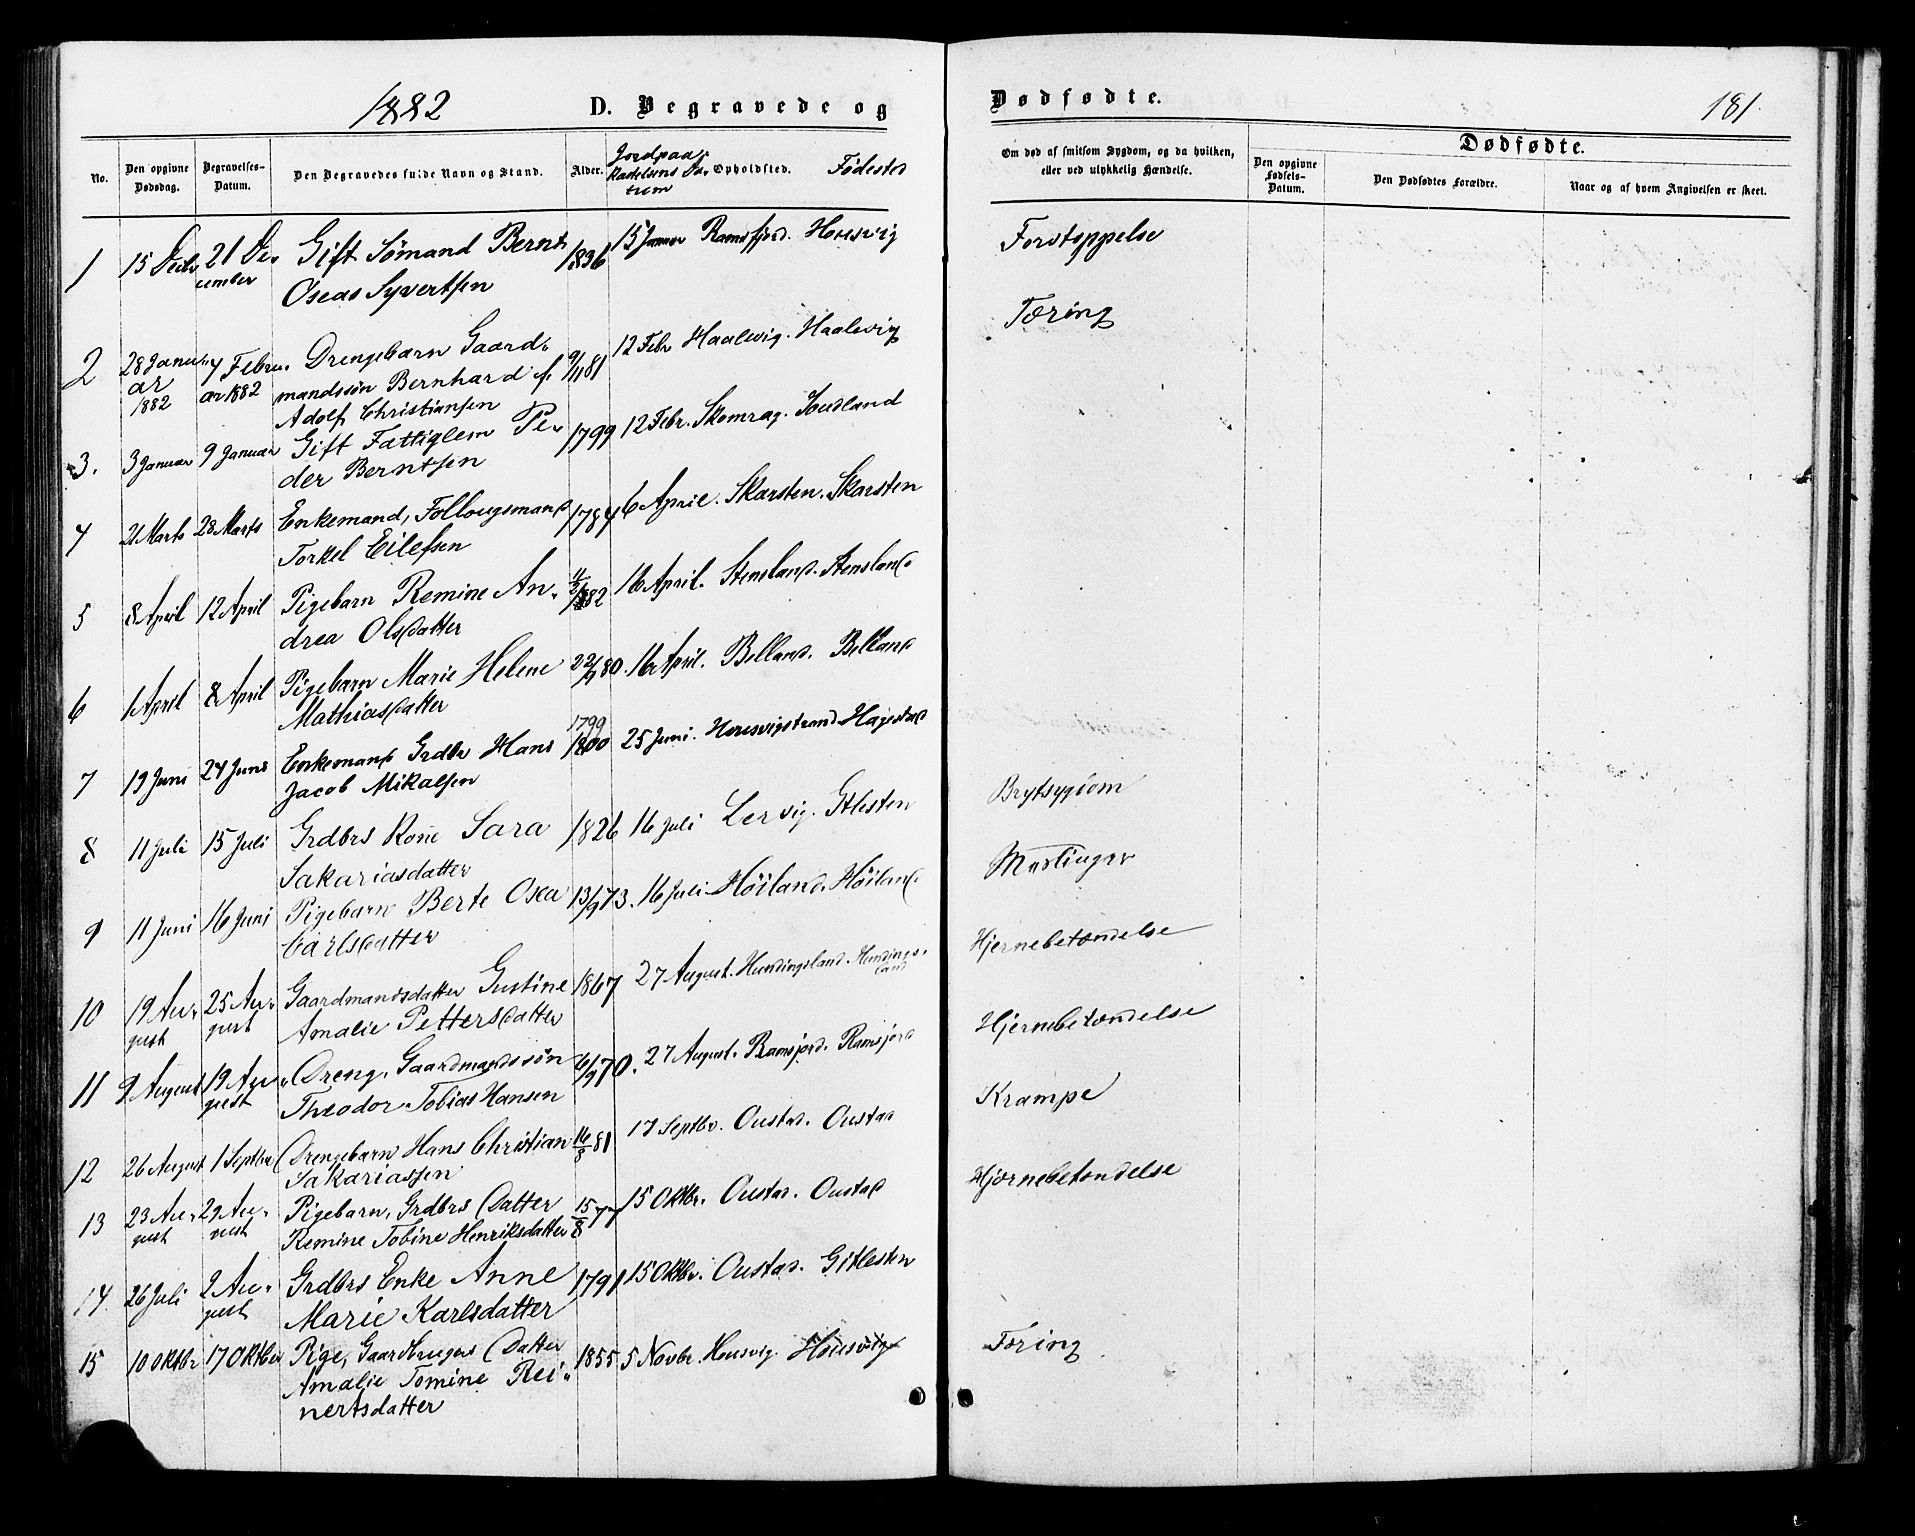 1882 D. Begravede og Dødfødte. 181.
No. Den opgivne Dødsdag. Begravelses-Datum. Den Begravedes fulde Navn og Stand. Alder. Jordpaakastelsens Datum Opholdsted. Fødested
Om død af smitsom Sygdom, og da hvilken, eller ved ulykkelig Hændelse.
Dødfødte.
Den opgivne Fødsels-Datum. Den Dødfødtes Forældre. Naar og af hvem Angivelsen er skeet.
1 15 Decb. 21 De- Gift Sømand Bernt 1836 15 Januar Ramsfjord. Forstoppelse
cember Oseas Syvertsen
2 28 Janu- 7 Febru- Drengebarn Gaard- 9/11 81 12 Febr Haalvig. Haalvig Tæring
ar ar 1882 mandssøn Bernhard
1882 Adolf Christiansen
3. 3 Januar 9 Januar Gift Fattiglem Pe- 1799 12 Febr. Skomrag.
der Berntsen
4 21 Marts 28 Marts Enkemand, Follougsmand 1784 6 April. Skarsten. Skarsten
Torkel Eilefsen
5 8 April 12 April Pigebarn Remine An- 16 April. Stensland. Stensland
drea Olsdatter
6 1 April 8 April Pigebarn Marie Helene 16 April. Belland. Belland
Mathiasdatter
1799
7 19 Juni 24 Juni Enkemand Grdbr Hans 1800 25 Juni. Hagestad
Jacob Mikalsen
8 11 Juli 15 Juli Grdbrs Kone Sara 1826 16 Juli Lervig. Gitlesten Brytsygdom
Sakariasdatter
9 11 Juni 16 Juni Pigebarn Berte Osea 13/9 73. 16 Juli Höiland. Höiland. Meslinger
Carlsdatter
10 19 Au- 25 Au- Gaardmandsdatter Gustine 1867 27 August. Hundingsland. Hundings- Hjernebetændelse
gust gust Amalie Pettersdatter land
11 9 August 19 Au- Dreng, Gaardmandssøn 6/9 70. 27 August. Ramsjord. Ramsjord Hjernebetændelse
gust Theodor Tobias Hansen
12 26 August 1 Septbr Drengebarn Hans Christian 16/8 81 17 Septbr. Oustad. Oustad Krampe
Sakariassen
13 23 Au- 29 Au- Pigebarn, Grdbrs Datter 15/8 77 15 Oktbr. Oustad. Oustad Hjernebetændelse
gust gust Remine Tobine Henriksdatter
14. 26 Juli 2 Au- Grdbrs Enke Anne 1791 15 Oktbr. Oustad. Gitlesten
gust Marie Karlsdatter
15 10 Oktbr 17 Oktber Pige, Gaardbrugers Datter 1855 5 Novbr. Housvig. Housvig Tæring
Amalie Tomine Rei-
nertsdatter